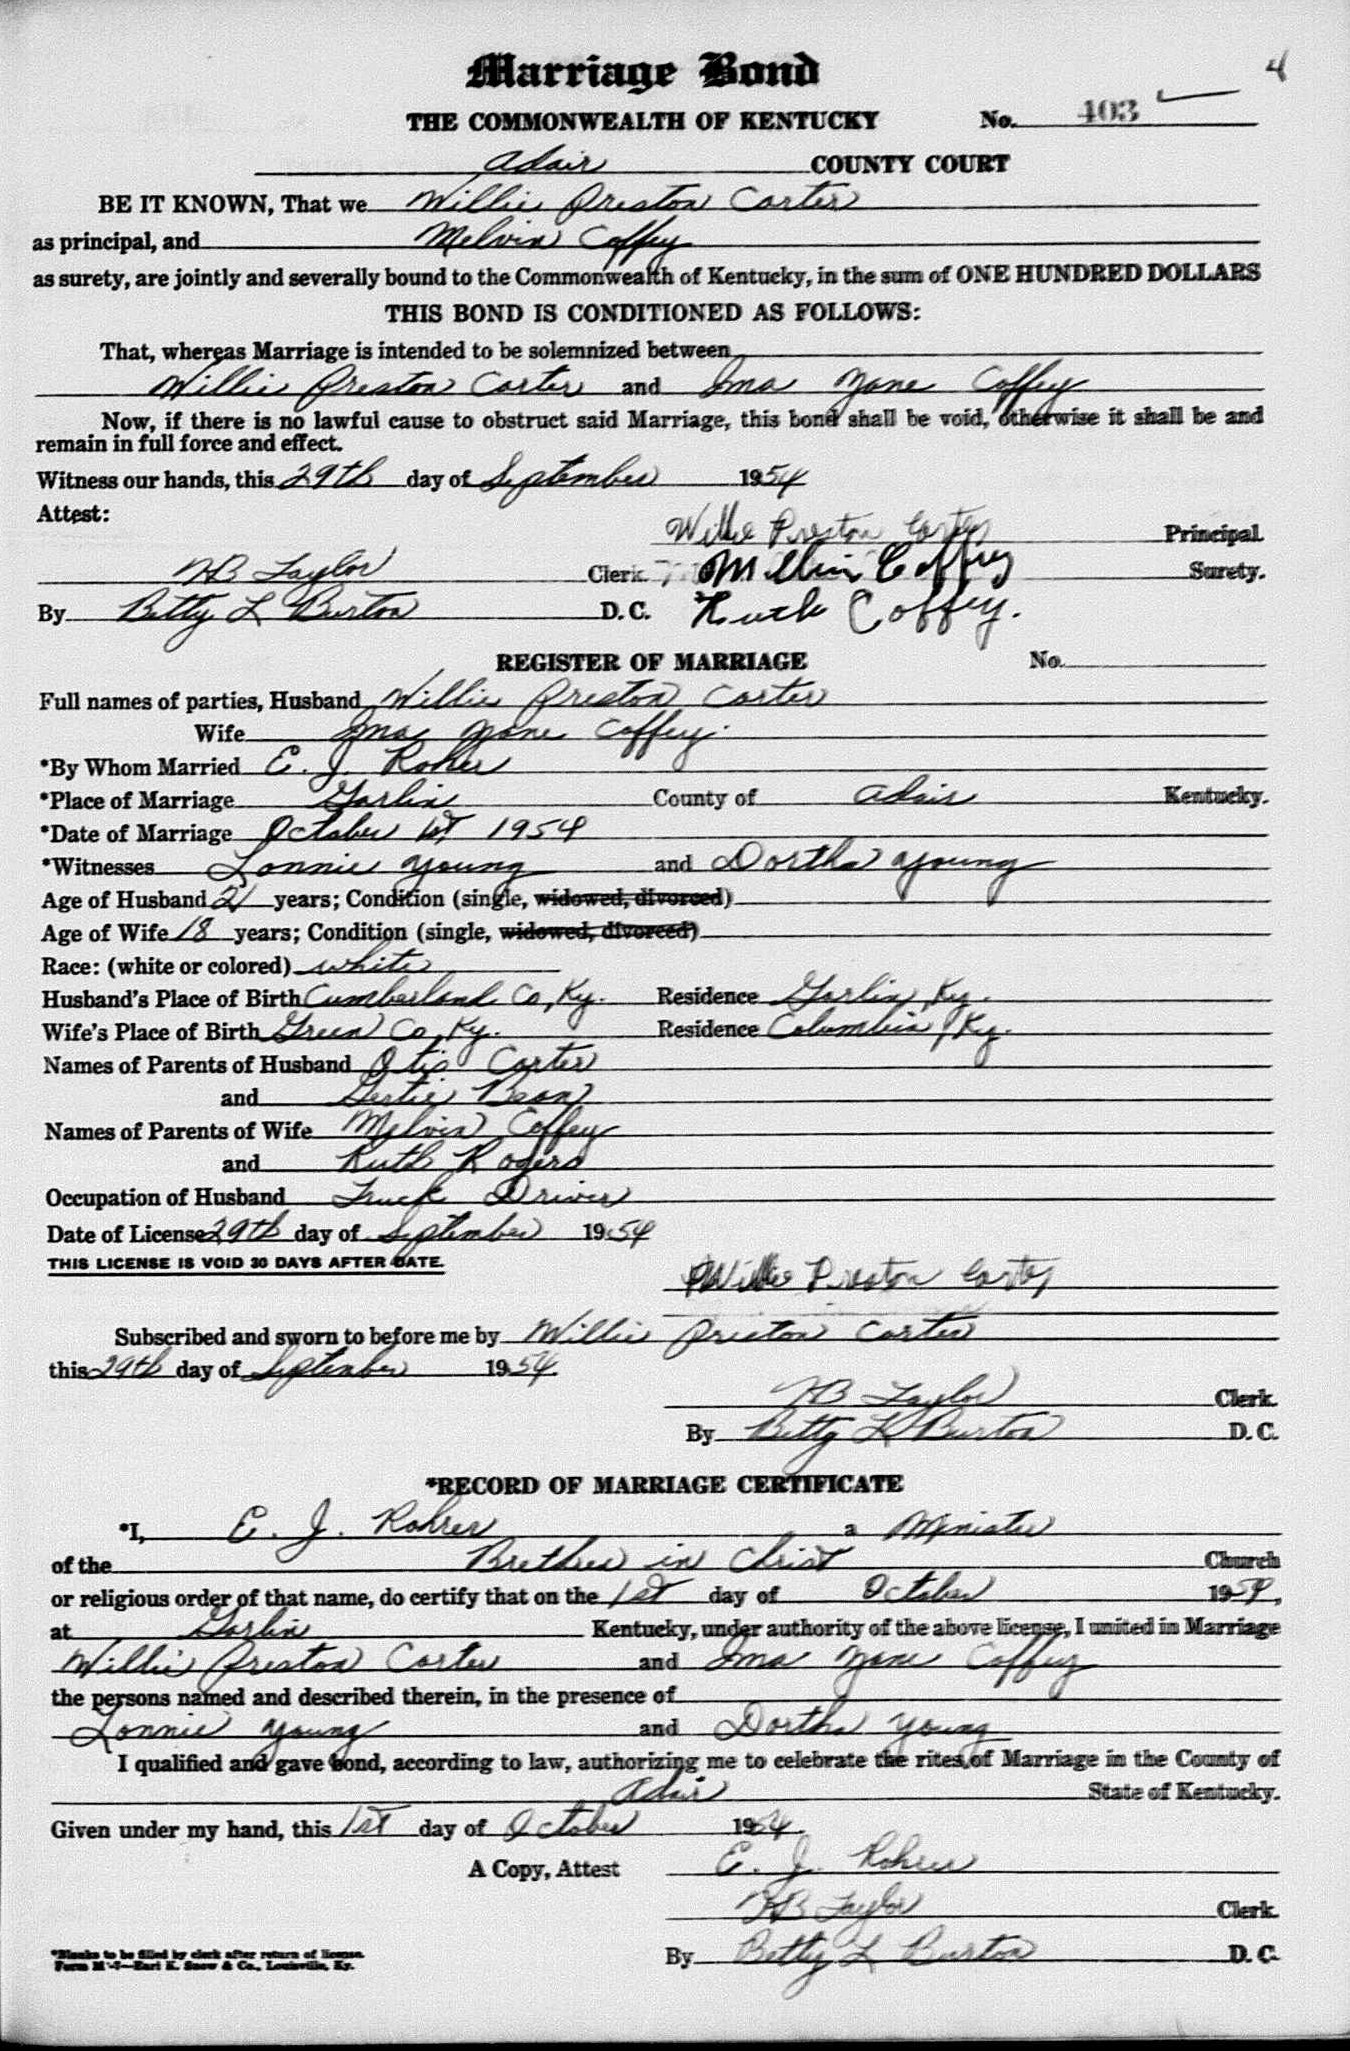 4
Marriage Bond
THE COMMONWEALTH OF KENTUCKY No. 403
Adair COUNTY COURT
BE IT KNOWN, That we Willie Preston Carter
as principal, and Melvin Coffey
as surety, are jointly and severally bound to the Commonwealth of Kentucky, in the sum of ONE HUNDRED DOLLARS
THIS BOND IS CONDITIONED AS FOLLOWS:
That, whereas Marriage is intended to be solemnized between
Willie Preston Carter and Ima Jane Coffey
Now, if there is no lawful cause to obstruct said Marriage, this bond shall be void, otherwise it shall be and
remain in full force and effect.
Witness our hands, this 29th day of September 1954
Attest:
Willie Preston Carter Principal.
Taylor Clerk Coffey Surety.
By Betty L Burton D. C. Ruth Coffey.
REGISTER OF MARRIAGE No.
Full names of parties, Husband Willie Preston Carter
Wife Ima Jane Coffey.
*By Whom Married E. J. Roher
*Place of Marriage Garlin County of Adair Kentucky.
*Date of Marriage October 1st 1954
*Witnesses Lonnie Young and Dortha Young
Age of Husband 21 years; Condition (single, widowed, divorced)
Age of Wife 18 years; Condition (single, widowed, divorced)
Race: (white or colored) white
Husband's Place of Birth Cumberland Co, Ky. Residence Garlin, Ky.
Wife's Place of Birth Green Co, Ky. Residence Columbia, Ky.
Names of Parents of Husband Otis Carter
and Gertie Bean
Names of Parents of Wife Melvin Coffey
and Ruth Rogers
Occupation of Husband Truck Driver
Date of License 29th day of September 1954
THIS LICENSE IS VOID 30 DAYS AFTER DATE.
Willie Preston Carter
Subscribed and sworn to before me by Willie Preston Carter
this 29th day of September 1954
Taylor Clerk.
By Betty L Burton D. C.
*RECORD OF MARRIAGE CERTIFICATE
*I, E. J. Rohrer a Minister
of the Brethren in Christ Church
or religious order of that name, do certify that on the 1st day of October 1954,
at Garlin Kentucky, under authority of the above license, I united in Marriage
Willie Preston Carter and Ima Jane Coffey
the persons named and described therein, in the presence of
Lonnie Young and Dortha Young
I qualified and gave bond, according to law, authorizing me to celebrate the rites of Marriage in the County of
Adair State of Kentucky.
Given under my hand, this 1st day of October 1954
A Copy, Attest E. J. Rohrer
Taylor Clerk.
*Blanks to be filled by clerk after return of license. By Betty L Burton D. C.
Earl K. Snow & Co., Louisville, Ky.